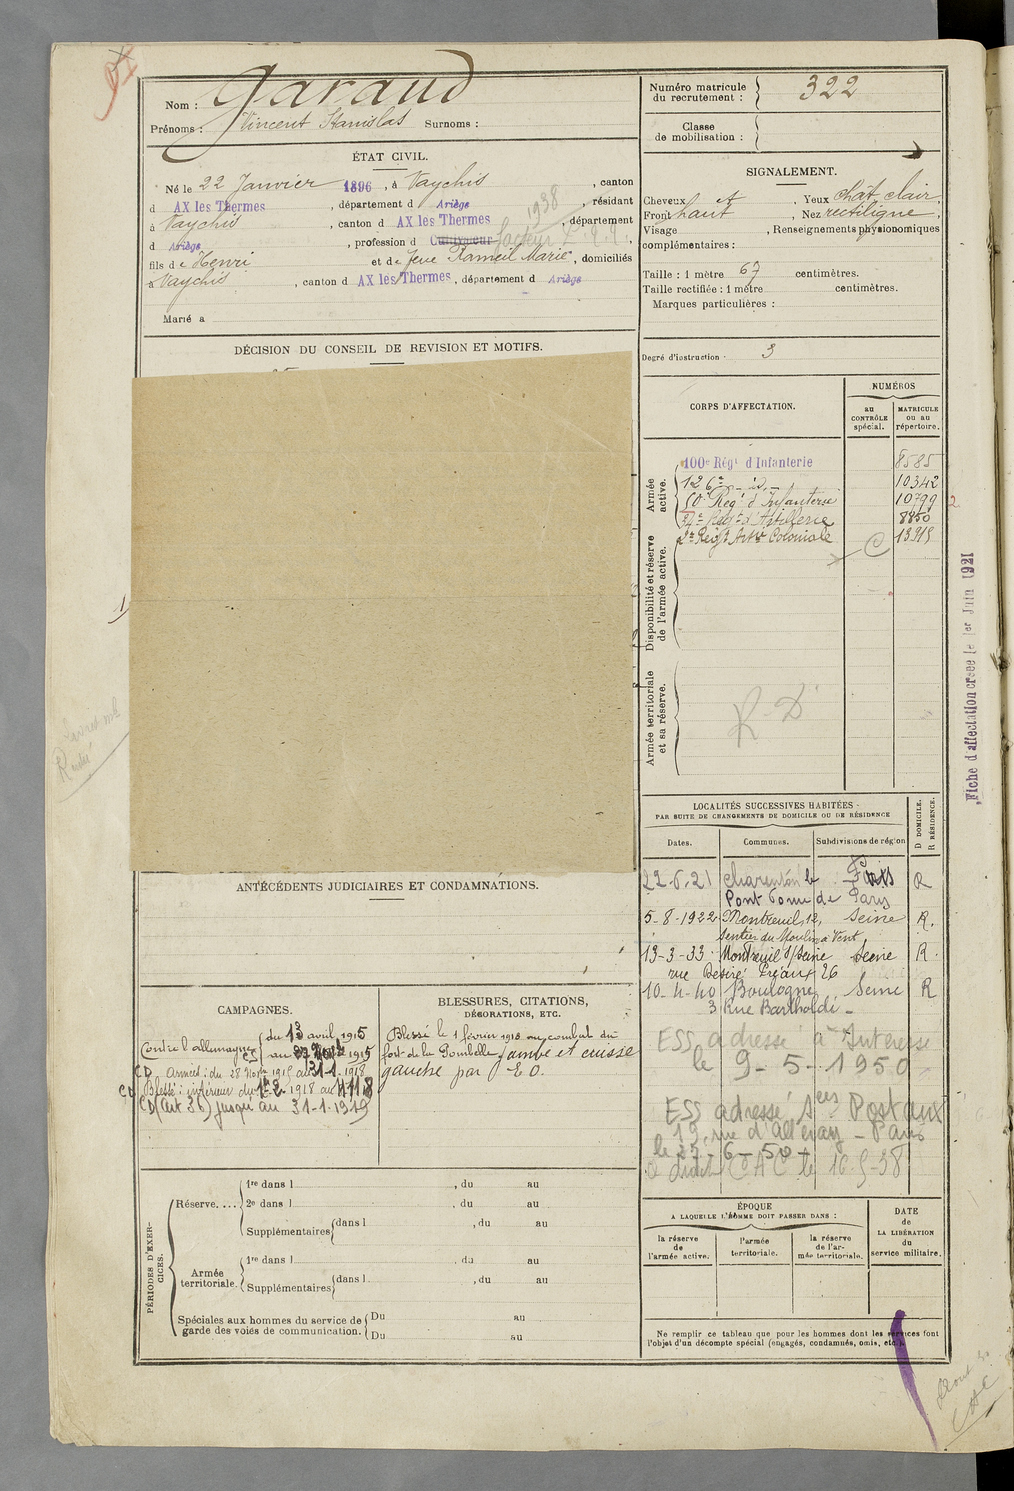 Nom : Garaud
Prénoms : Vincent Stanislas Surnoms :
ÉTAT CIVIL.
Né le 22 Janvier 1896, à Vaychis, canton
d AX les Thermes, département d Ariège, résidant
à Vaychis, canton d AX les Thermes, département
d Ariège, profession d Cultivateur facteur 1938
fils de Henri et de feue Rameil Marie, domiciliés
à Vaychis, canton d AX les Thermes, département d Ariège
Marié à
DÉCISION DU CONSEIL DE REVISION ET MOTIFS.
ANTÉCÉDENTS JUDICIAIRES ET CONDAMNATIONS.
CAMPAGNES.
Contre l'allemagne du 13 avril 1915
au 27 1915
CD armées : du 28 1915 au 31-1-1918
Blessé : intérieur du 1-2 1918 au
CD (Art 36) jusqu'au 31-1-1919
BLESSURES, CITATIONS,
DÉCORATIONS, ETC.
Blessé le 1 février 1918 au combat du
fort de la Pombelle, jambe et cuisse
gauche par E O.
PÉRIODES D'EXERCICES.
Réserve.... 1re dans l , du au
2e dans l , du au
Supplémentaires dans l , du au
Armée territoriale. 1re dans l , du au
Supplémentaires dans l , du au
Spéciales aux hommes du service de Du au
garde des voies de communication. Du au
Numéro matricule
du recrutement : 322
Classe
de mobilisation :
SIGNALEMENT.
Cheveux Yeux chât. clair,
Front haut, Nez rectiligne,
Visage , Renseignements physionomiques
complémentaires :
Taille : 1 mètre 67 centimètres.
Taille rectifiée : 1 mètre centimètres.
Marques particulières :
Degré d'instruction : 3
CORPS D'AFFECTATION.
NUMÉROS
au
CONTRÔLE
spécial.
MATRICULE
ou au
répertoire.
Armée
active.
100e Régt d'Infanterie 8585
126e - id - 10342
50 Reg' d'Infanterie 10799 2
Regt d'Artillerie 8850
2e Régt Artie Coloniale C 13919
Disponibilité et réserve
de l'armée active.
Armée territoriale
et sa réserve.
R-D
LOCALITÉS SUCCESSIVES HABITÉES
PAR SUITE DE CHANGEMENTS DE DOMICILE OU DE RÉSIDENCE
D DOMICILE.
R RÉSIDENCE.
Dates. Communes. Subdivisions de région
22.6.21 Charenton le Paris R
Pont de Paris
5-8-1922 Montreuil, 12, Seine R.
Sentier du Moulin à Vent
13-3-33 Montreuil s/Seine Seine R.
rue Désiré Préaux 26
10-4-40 Boulogne Seine R
3 Rue Bartholdi -
ESS adressé à l'Intéressé
le 9-5-1950
ESS adressé Sces Postaux
19, rue d'Alleray - Paris
le 27-6-50
CAC le 16-5-38
ÉPOQUE
A LAQUELLE L'HOMME DOIT PASSER DANS :
la réserve
de
l'armée active.
l'armée
territoriale.
la réserve
de l'armée territoriale.
DATE
de
LA LIBÉRATION
du
service militaire.
Ne remplir ce tableau que pour les hommes dont les services font
l'objet d'un décompte spécial (engagés, condamnés, omis, etc.).
Fiche d'affectation créée le 1er Juin 1921